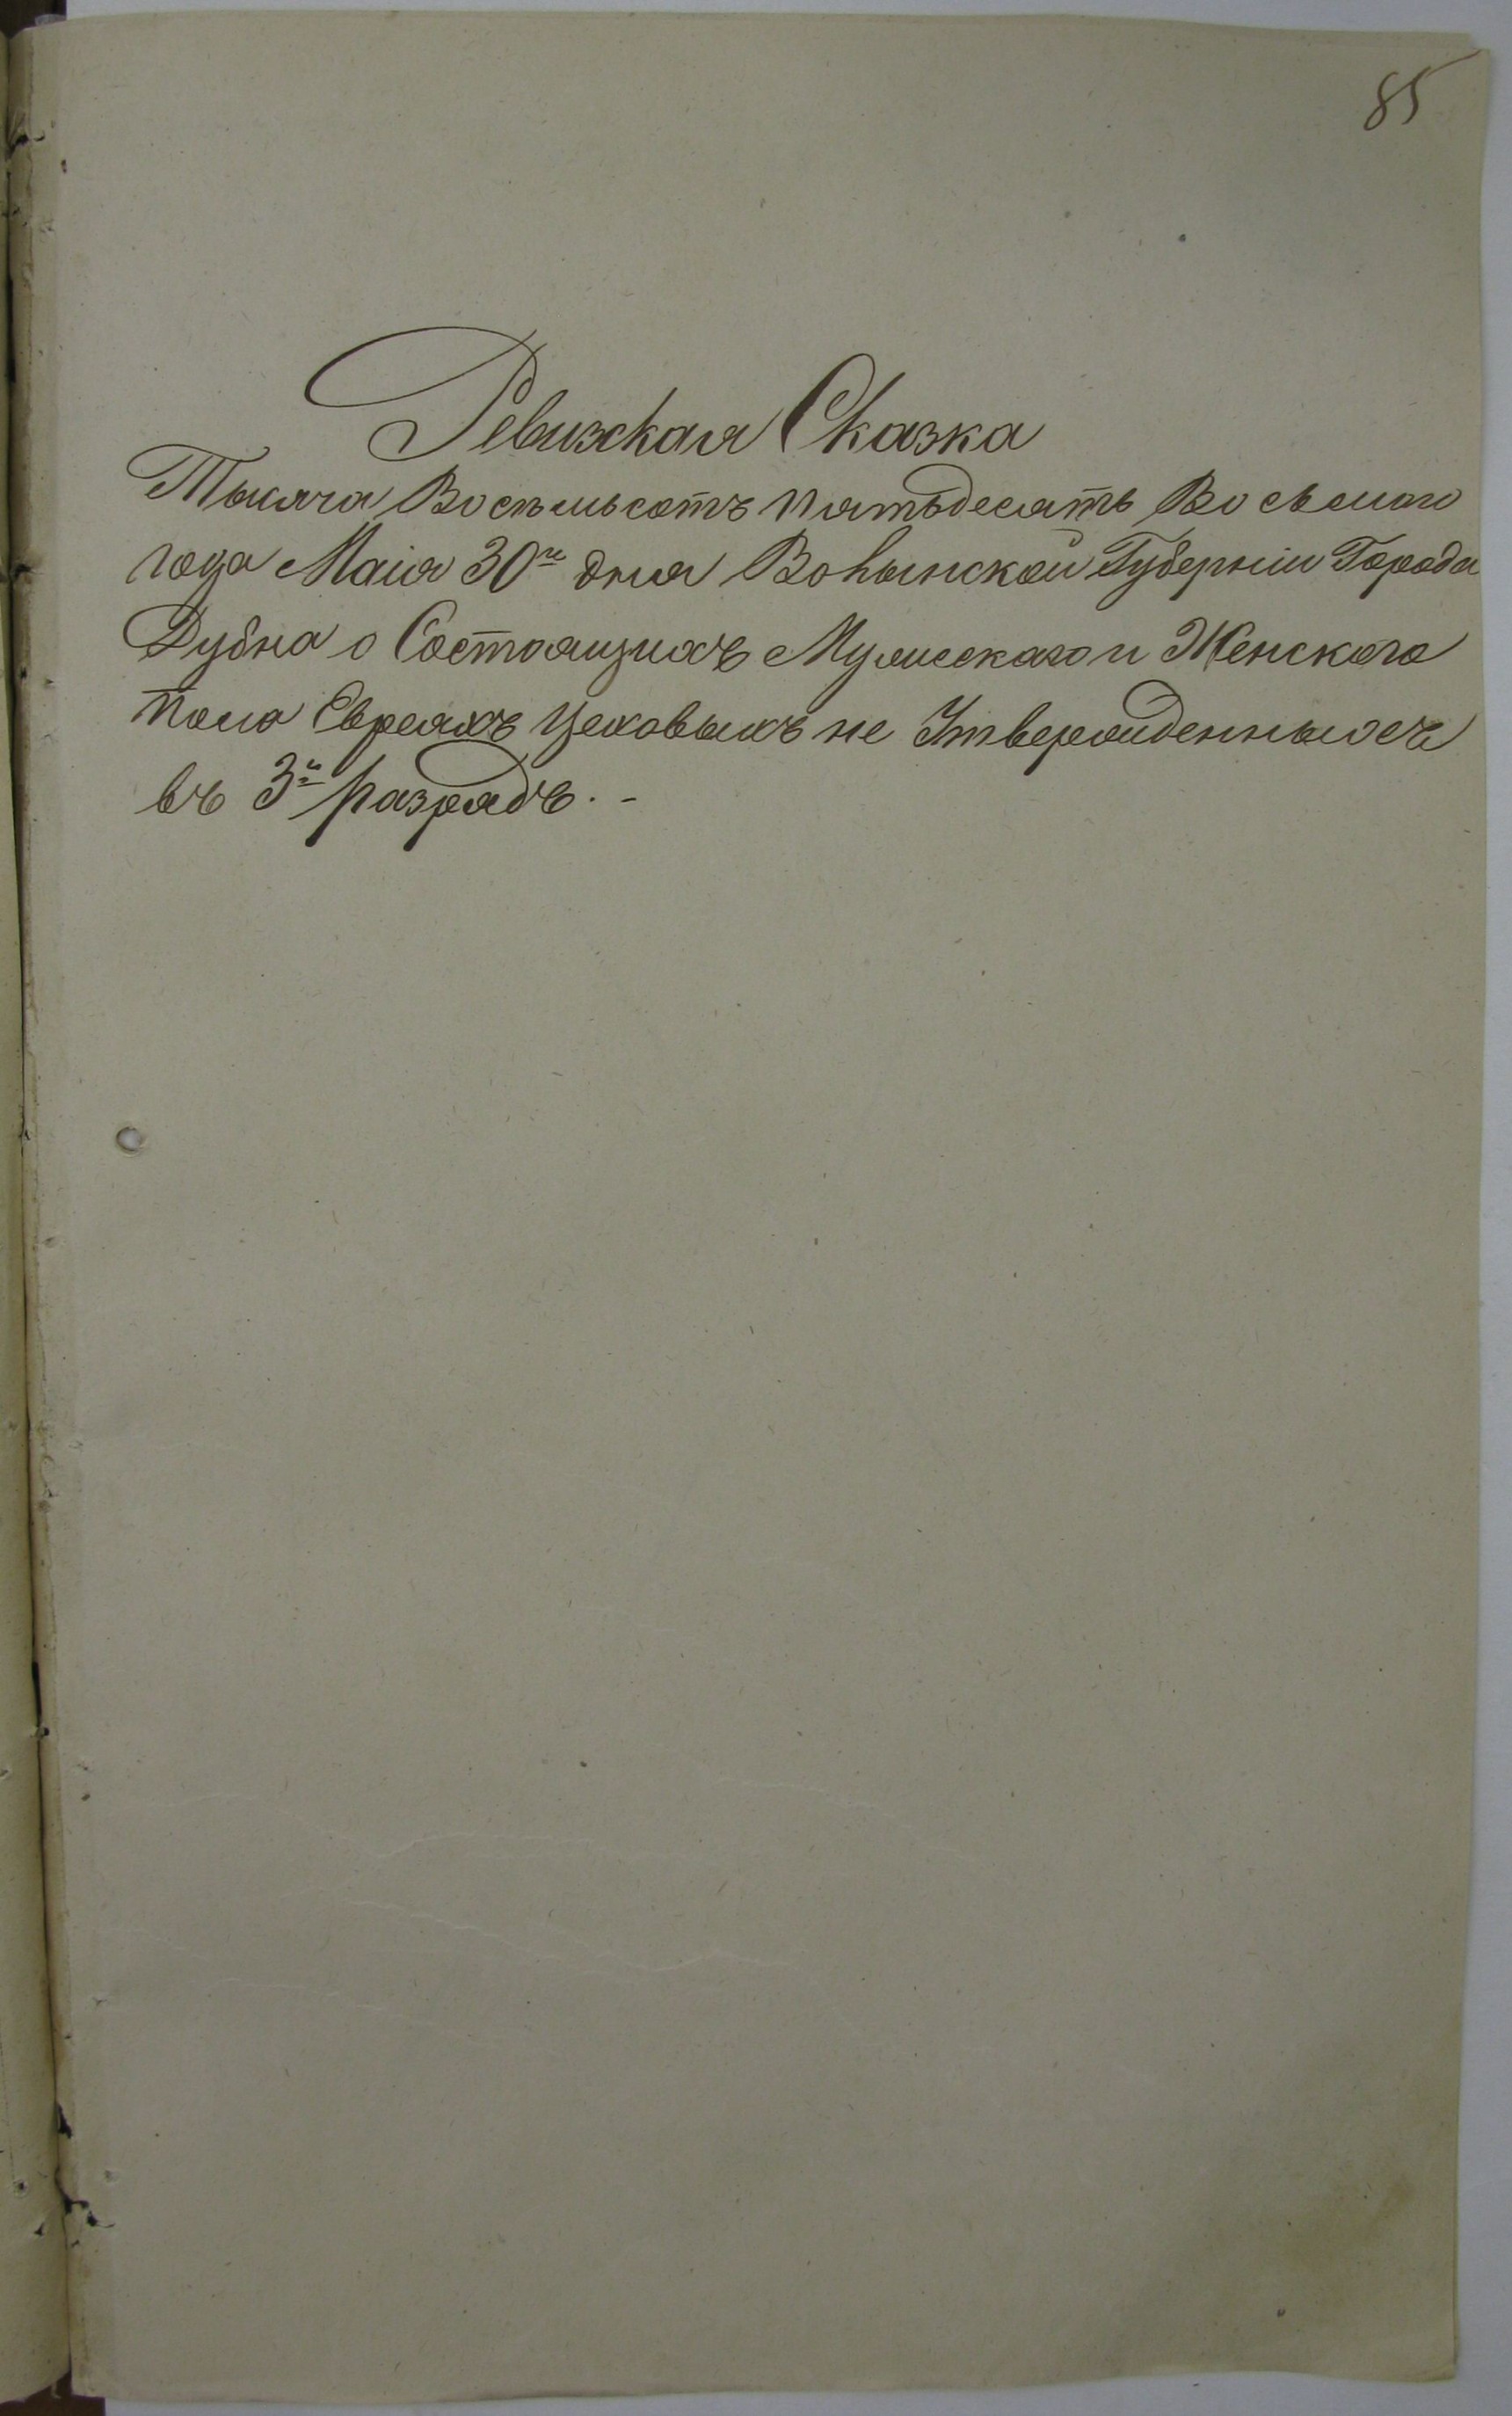 85
Ревизская Сказка
Тысяча Восемьсотъ пятьдесятъ Восьмаго
года Маія 30го дня Волынской Губерніи Города
Дубна о Состоящихъ Мужескаго и Женскаго
пола Евреяхъ Цеховыхъ не Утвержденныхъ
въ 3й разрядъ. -